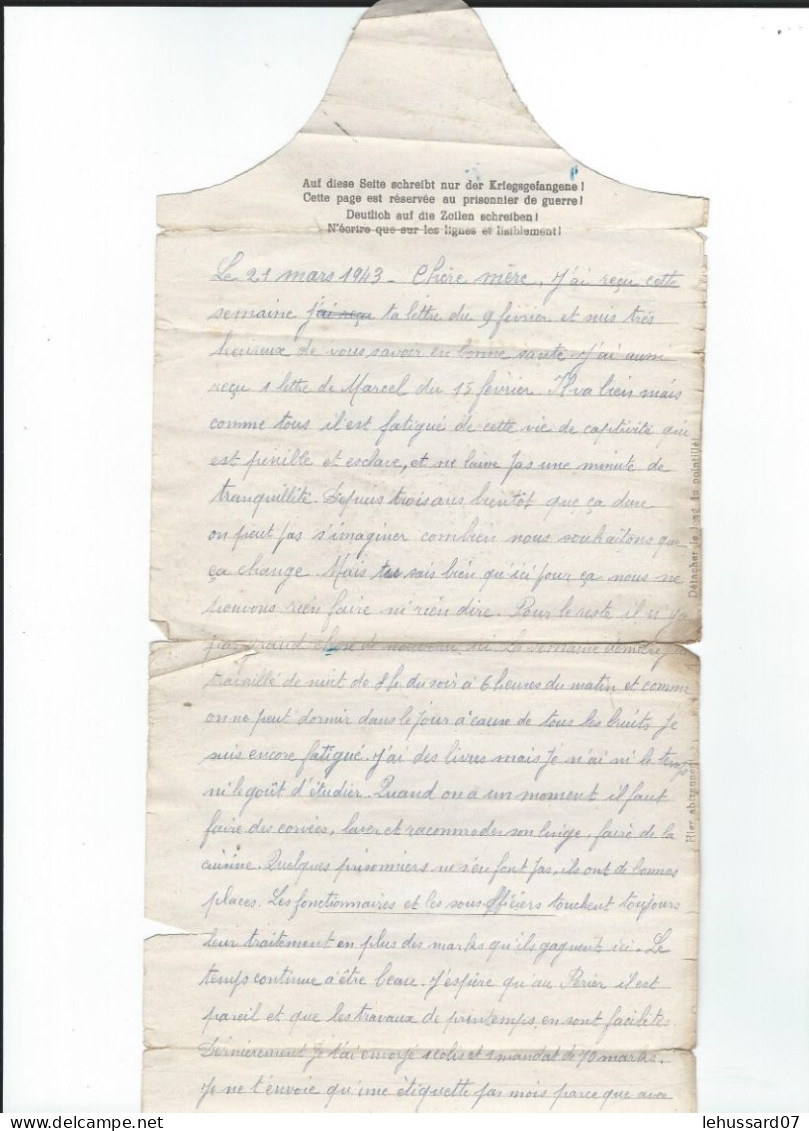 Auf diese Seite schreibt nur der Kriegsgefangene!
Cette page est réservée au prisonnier de guerre!
Deutlich auf die Zeilen schreiben!
N'écrire que sur les lignes et lisiblement!
Le 21 mars 1943 - Chère mère, J'ai reçu cette
semaine j'ai reçu ta lettre du 9 février et suis très
heureux de vous savoir en bonne santé. J'ai aussi
reçu 1 lettre de Marcel du 15 février. Il va bien mais
comme tous il est fatigué de cette vie de captivité qui
est pénible et esclave, et ne laisse pas une minute de
tranquillité. Depuis trois ans bientôt que ça dure
on peut pas s'imaginer combien nous souhaitons que
ça change. Mais tu sais bien qu'ici pour ça nous ne
pouvons rien faire ni rien dire. Pour le reste il n'y a
pas grand chose de nouveau ici. La semaine dernière j'ai
travaillé de nuit de 8h du soir à 6 heures du matin et comme
on ne peut dormir dans le jour à cause de tous les bruits je
suis encore fatigué. J'ai des livres mais je n'ai ni le temps
ni le goût d'étudier. Quand on a un moment il faut
faire des corvées, laver et raccommoder son linge, faire de la
cuisine. Quelques prisonniers ne s'en font pas, ils ont de bonnes
places. Les fonctionnaires et les sous officiers touchent toujours
leur traitement en plus des marks qu'ils gagnent ici. Le
temps continue à être beau. J'espère qu'au Périer il est
pareil et que les travaux de printemps en sont facilités.
Dernièrement je t'ai envoyé 1 colis et 1 mandat de 70 marks.
Je ne t'envoie qu'une étiquette par mois parce que avec
Détacher le long du pointillé!
Hier abtrennen!
lehussard07